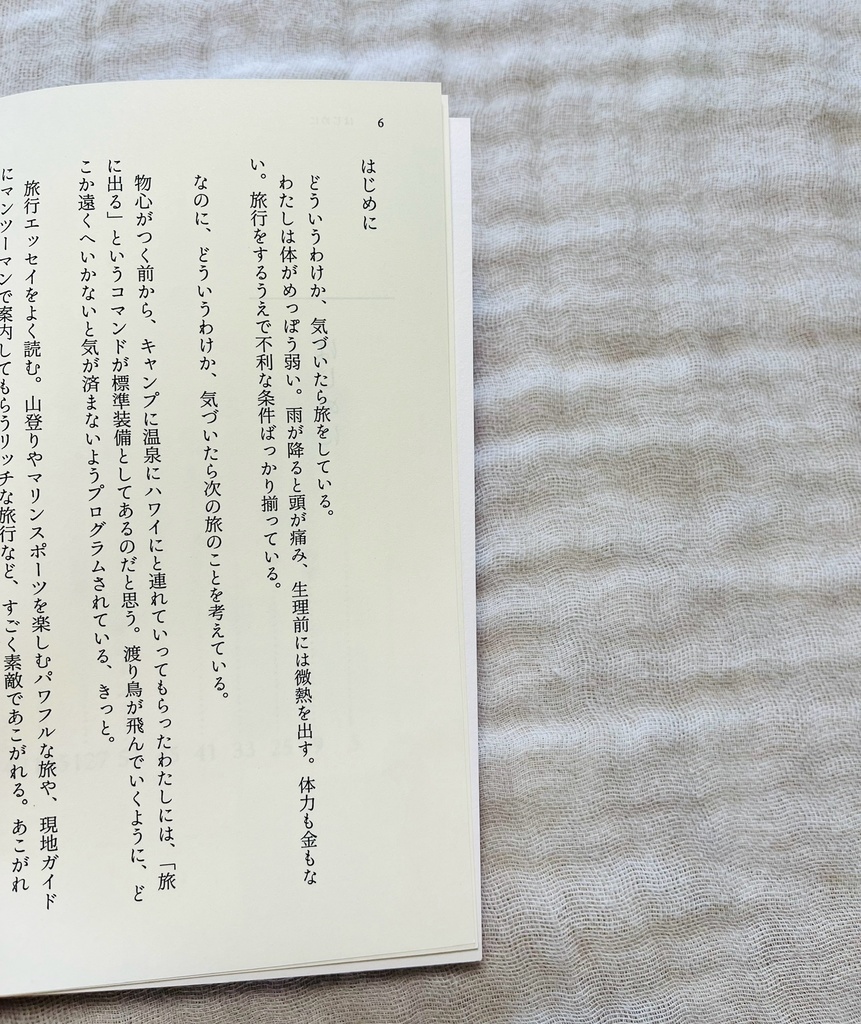 6
はじめに
どういうわけか、気づいたら旅をしている。
わたしは体がめっぽう弱い。雨が降ると頭が痛み、生理前には微熱を出す。体力も金もな
い。旅行をするうえで不利な条件ばっかり揃っている。
なのに、どういうわけか、気づいたら次の旅のことを考えている。
物心がつく前から、キャンプに温泉にハワイにと連れていってもらったわたしには、「旅
に出る」というコマンドが標準装備としてあるのだと思う。渡り鳥が飛んでいくように、ど
こか遠くへいかないと気が済まないようプログラムされている、きっと。
旅行エッセイをよく読む。山登りやマリンスポーツを楽しむパワフルな旅や、現地ガイド
にマンツーマンで案内してもらうリッチな旅行など、すごく素敵であこがれる。あこがれ